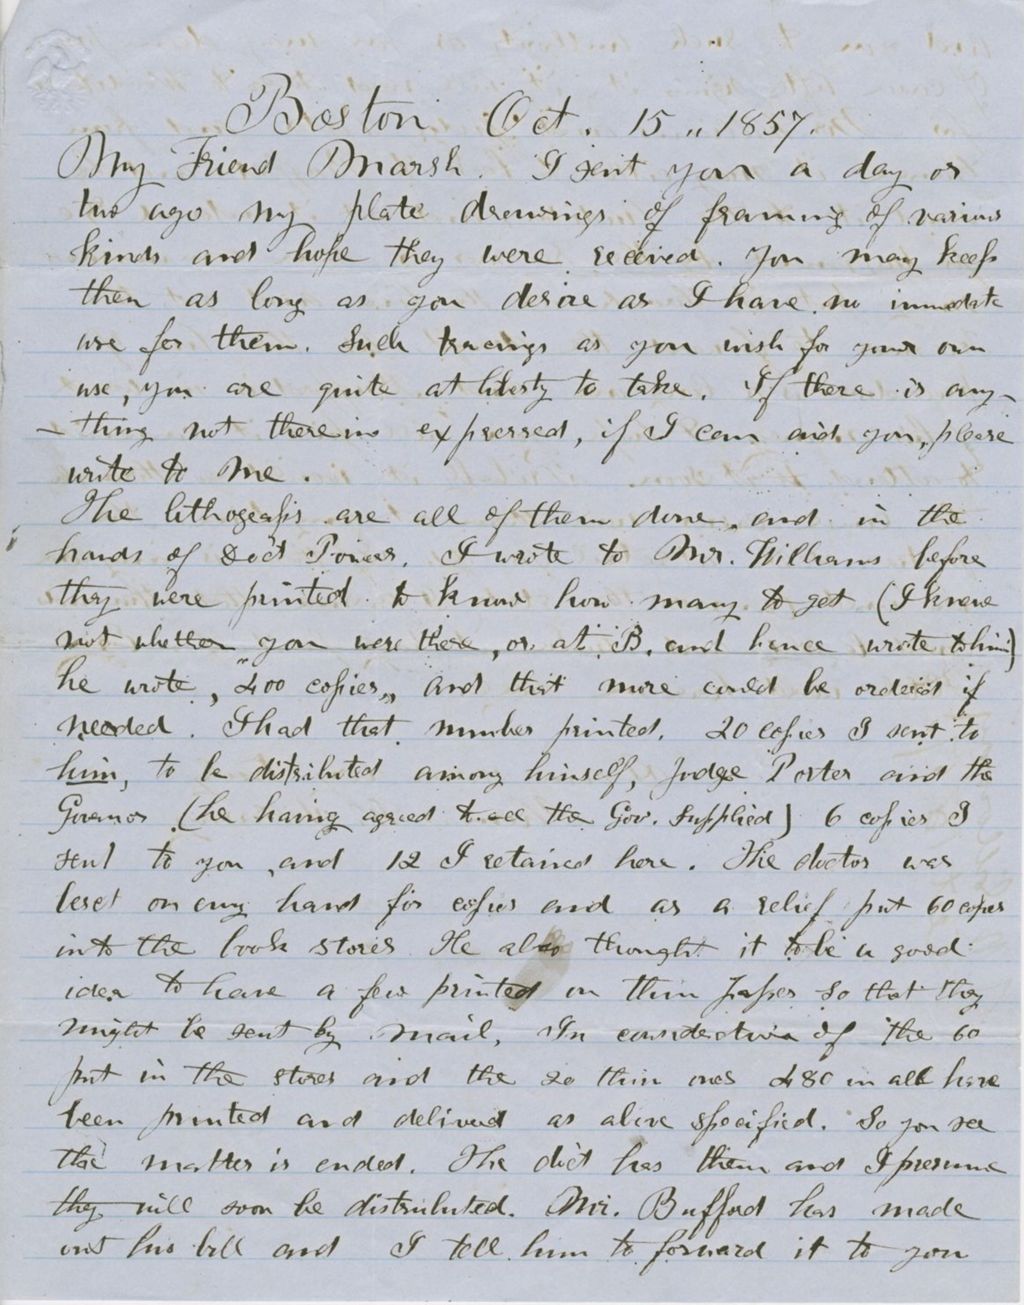 Boston Oct. 15, 1857.
My Friend Marsh. I sent you a day or
two ago my plate drawings of framing of various
kinds and hope they were received. You may keep
them as long as you desire as I have no immediate
use for them. Such tracings as you wish for your own
use, you are quite at liberty to take. If there is any-
-thing not therein expressed, if I can aid you, please
write to me.
The lithogeafs are all of them done, and in the
hands of Doct Powers. I wrote to Mr. Williams before
they were printed to know how many to get (I knew
not whether you were there, or at B. and hence wrote to him)
he wrote, "400 copies" and that more could be ordered if
needed. I had that number printed. 20 copies I sent to
him, to be distributed among himself, Judge Porter and the
Governor (he having agreed to see the Gov. supplied) 6 copies I
sent to you, and 12 I retained here. The doctor was
beset on evry hand for copies and as a relief put 60 copies
into the book stores. He also thought it to be a good
idea to have a few printed on thin paper so that they
might be sent by mail. In consideration of the 60
put in the stores and the 20 thin ones 480 in all have
been printed and delivered as above specified. So you see
the matter is ended. The doct has them and I presume
they will soon be distributed. Mr. Bufford has made
out his bill and I tell him to forward it to you